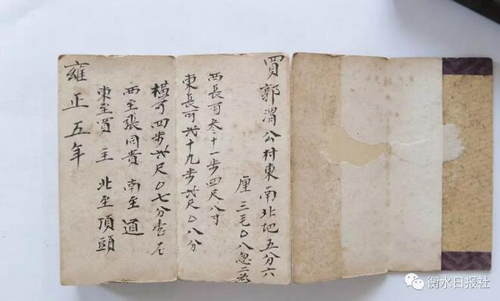 買郭渭公村東南北地五分六
厘三毛〇八忽二
西長可叁十一步四尺八寸
東長可十九步尺〇八分
橫可四步尺〇七分
西至張同貴 南至道
東至買主 北至頂頭
雍正五年
衡水日报社